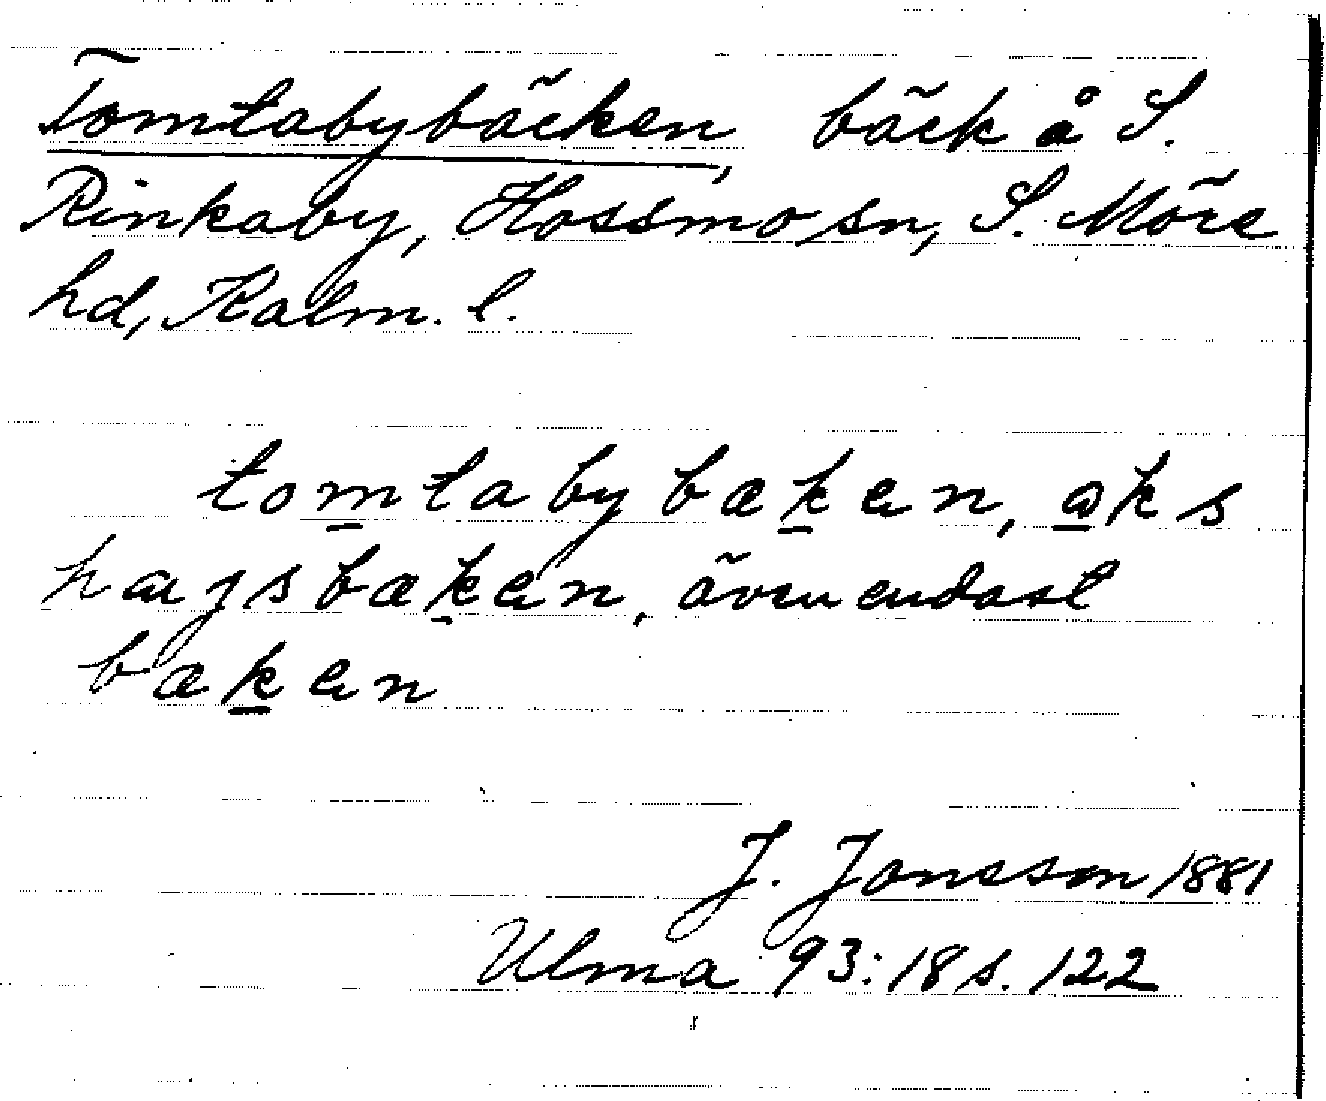 Tomtabybäcken, bäck å S.
Rinkaby, Hossmo sn, S. Möre
hd, Kalm. l.
tomtabybækæn, aks
hægsbækæn, även endast
bækæn
J. Jonsson 1881
Ulma 93:18 s. 122